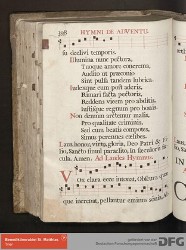 308 HYMNI DE ADVENTU.
su declivi temporis.
Illumina nunc pectora,
Tuoque amore concrema,
Audita ut præconio
Sint pulsa tandem lubrica.
Iudexque cum post aderis,
Rimari facta pectoris,
Reddens vicem pro abditis,
Iustisque regnum pro bonis.
Non demum arctemur malis,
Pro qualitate criminis,
Sed cum beatis compotes,
Simus perennes cælibes.
Laus, honor, virtus, gloria, Deo Patri & Fi
lio, Sancto simul paraclito, in sæculorum sæ
cula. Amen. Ad Laudes Hymnus.
VOx clara ecce intonat, obscura quæ
que increpat, pellantur eminus somnia,
DFG